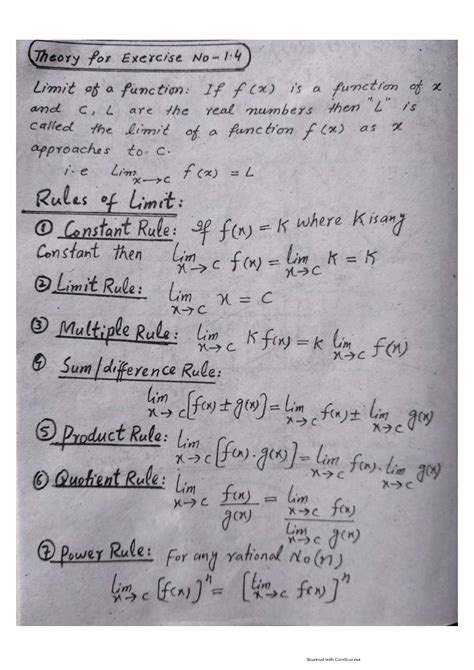 Theory for Exercise No-1.4
Limit of a function: If f(x) is a function of x
and C, L are the real numbers then "L" is
called the limit of a function f(x) as x
approaches to C.
i.e Lim x→c f(x) = L
Rules of Limit:
① Constant Rule: If f(x) = K where K is any
Constant then lim x→c f(x) = lim x→c K = K
② Limit Rule: lim x→c x = C
③ Multiple Rule: lim x→c K f(x) = K lim x→c f(x)
④ Sum/difference Rule:
lim x→c [f(x) ± g(x)] = lim x→c f(x) ± lim x→c g(x)
⑤ Product Rule: lim x→c [f(x) · g(x)] = lim x→c f(x) · lim x→c g(x)
⑥ Quotient Rule: lim x→c f(x)/g(x) = lim x→c f(x) / lim x→c g(x)
⑦ Power Rule: For any rational No(n)
lim x→c [f(x)]ⁿ = [lim x→c f(x)]ⁿ
Scanned with CamScanner